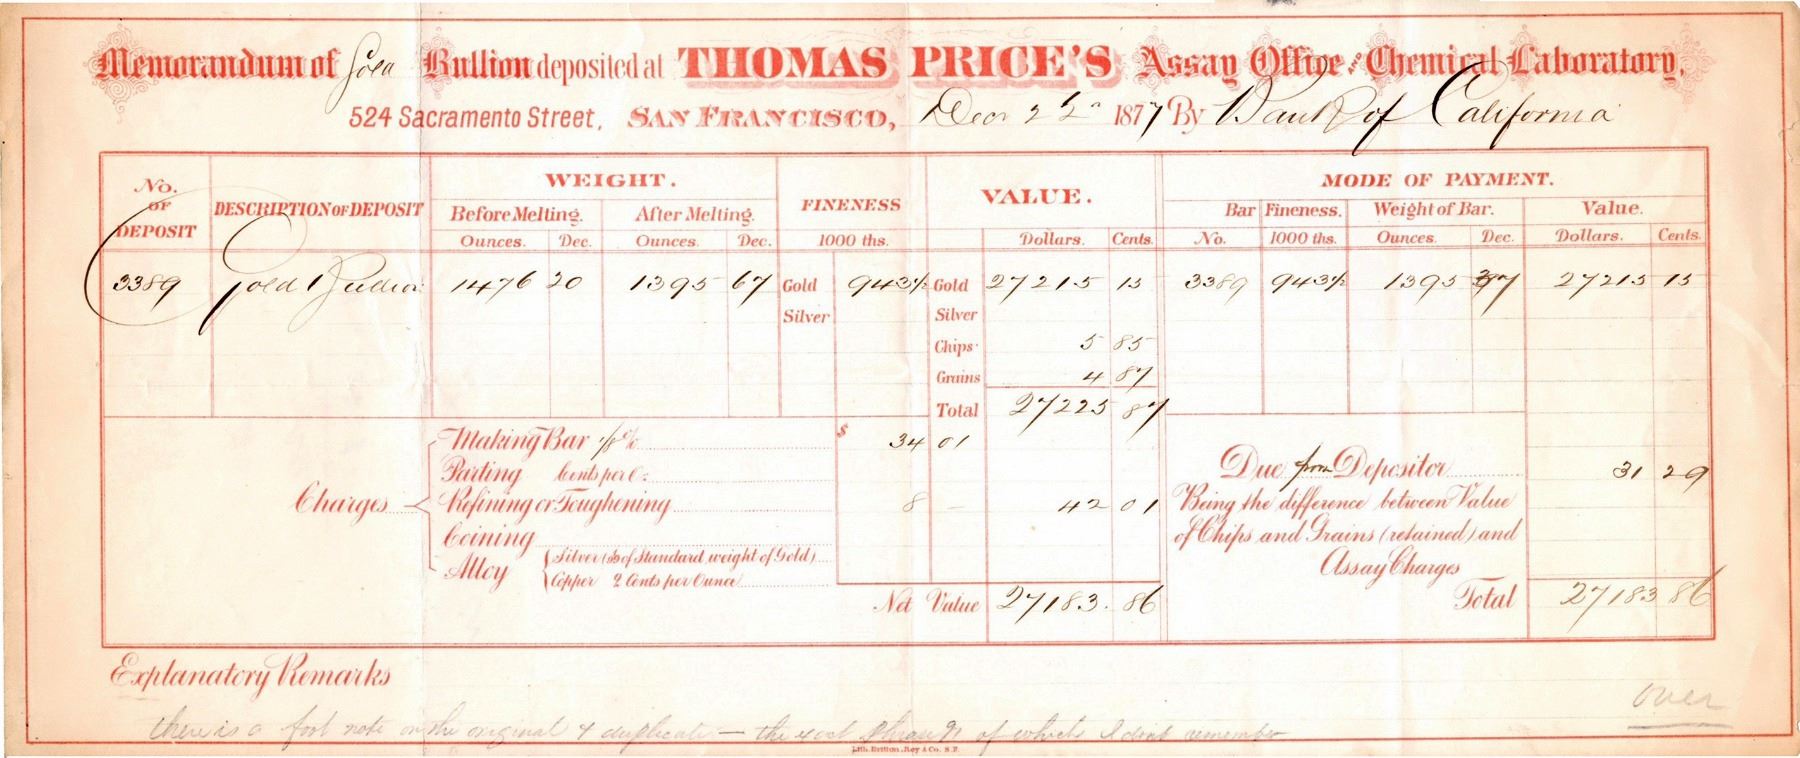 Memorandum of Gold Bullion deposited at THOMAS PRICE'S Assay Office AND Chemical Laboratory,
524 Sacramento Street, SAN FRANCISCO, Decr 22d 1877 By Bank of California
No. OF DEPOSIT DESCRIPTION OF DEPOSIT WEIGHT. FINENESS VALUE. MODE OF PAYMENT.
Before Melting. After Melting. Bar Fineness. Weight of Bar. Value.
Ounces. Dec. Ounces. Dec. 1000 ths. Dollars. Cents. No. 1000 ths. Ounces. Dec. Dollars. Cents.
3389 Gold Bullion 1476 20 1395 67 Gold 943½ Gold 27215 15 3389 943½ 1395 37 27215 15
Silver Silver
Chips 5 85
Grains 4 87
Total 27225 87
Charges
Making Bar ⅛% $ 34 01
Parting Cents per O:
Refining or Toughening 8 — 42 01
Coining
Alloy Silver ( of Standard weight of Gold)
Copper 2 Cents per Ounce
Net Value 27183. 86
Due from Depositor 31 29
Being the difference between Value
of Chips and Grains (retained) and
Assay Charges
Total 27183 86
Explanatory Remarks
over
there is a foot note on the original & duplicate — the exact phrase of which I dont remember
Lith. Britton, Rey & Co. S.F.